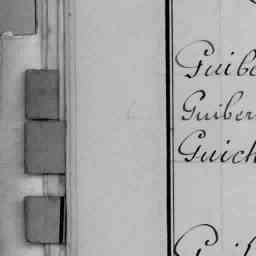 Guibe
Guiber
Guich